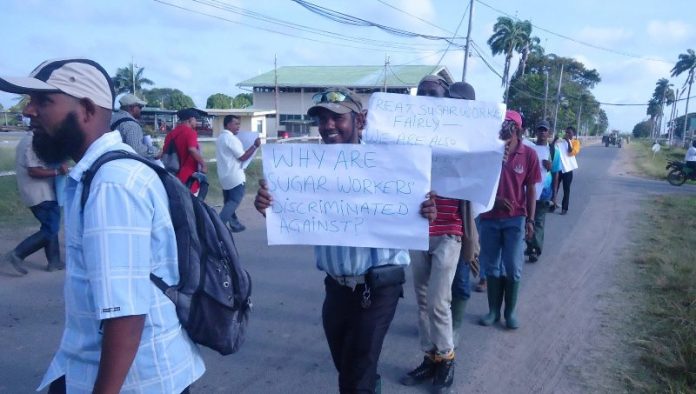 WHY ARE
SUGAR WORKERS'
DISCRIMINATED
AGAINST?
SUGAR WORKERS
FAIRLY —
WE ARE ALSO